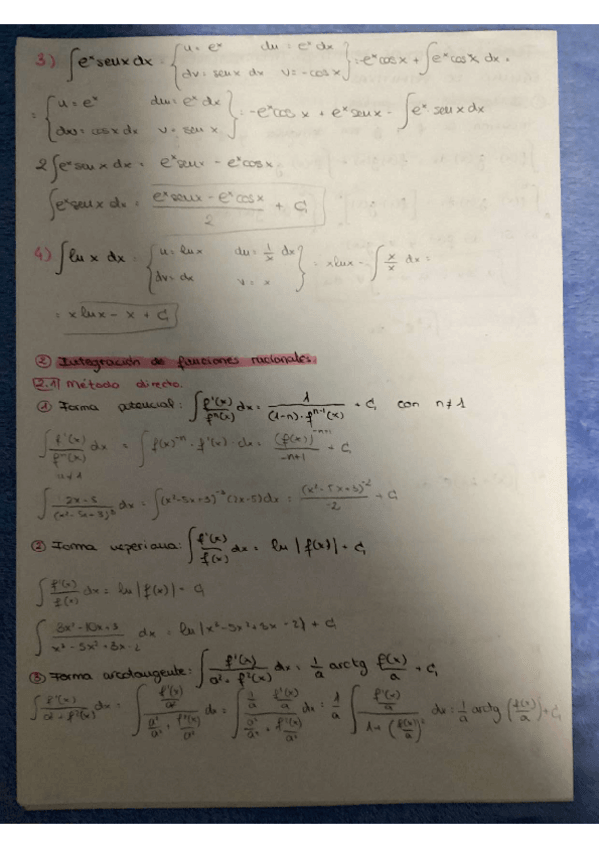 3) ∫ eˣ senx dx = { u = eˣ du = eˣ dx
dv = senx dx v = -cosx } = -eˣ cosx + ∫ eˣ cosx dx =
= { u = eˣ du = eˣ dx
dv = cosx dx v = senx } = -eˣ cosx + eˣ senx - ∫ eˣ senx dx
2∫ eˣ senx dx = eˣ senx - eˣ cosx
∫ eˣ senx dx = (eˣ senx - eˣ cosx)/2 + C,
4) ∫ lnx dx = { u = lnx du = 1/x dx
dv = dx v = x } = xlnx - ∫ x/x dx =
= xlnx - x + C,
② Integración de funciones racionales
2.1 Método directo.
① Forma potencial: ∫ f'(x)/fⁿ(x) dx = 1/((1-n)·fⁿ⁻¹(x)) + C, con n≠1
∫ f'(x)/fⁿ(x) dx = ∫ f(x)⁻ⁿ · f'(x) · dx = (f(x))⁻ⁿ⁺¹/(-n+1) + C,
n≠1
∫ (2x-5)/(x²-5x+3)³ dx = ∫ (x²-5x+3)⁻³ (2x-5) dx = (x²-5x+3)⁻²/-2 + C,
② Forma neperiana: ∫ f'(x)/f(x) dx = ln |f(x)| + C,
∫ f'(x)/f(x) dx = ln |f(x)| + C,
∫ (3x²-10x+3)/(x³-5x²+3x-2) dx = ln |x³-5x²+3x-2| + C,
③ Forma arcotangente: ∫ f'(x)/(a²+f²(x)) dx = 1/a arctg f(x)/a + C,
∫ f'(x)/(a²+f²(x)) dx = ∫ (f'(x)/a²)/(a²/a² + f²(x)/a²) dx = ∫ (1/a · f'(x)/a)/(a²/a² + f²(x)/a²) dx = 1/a ∫ (f'(x)/a)/(1+(f(x)/a)²) dx = 1/a arctg (f(x)/a) + C,